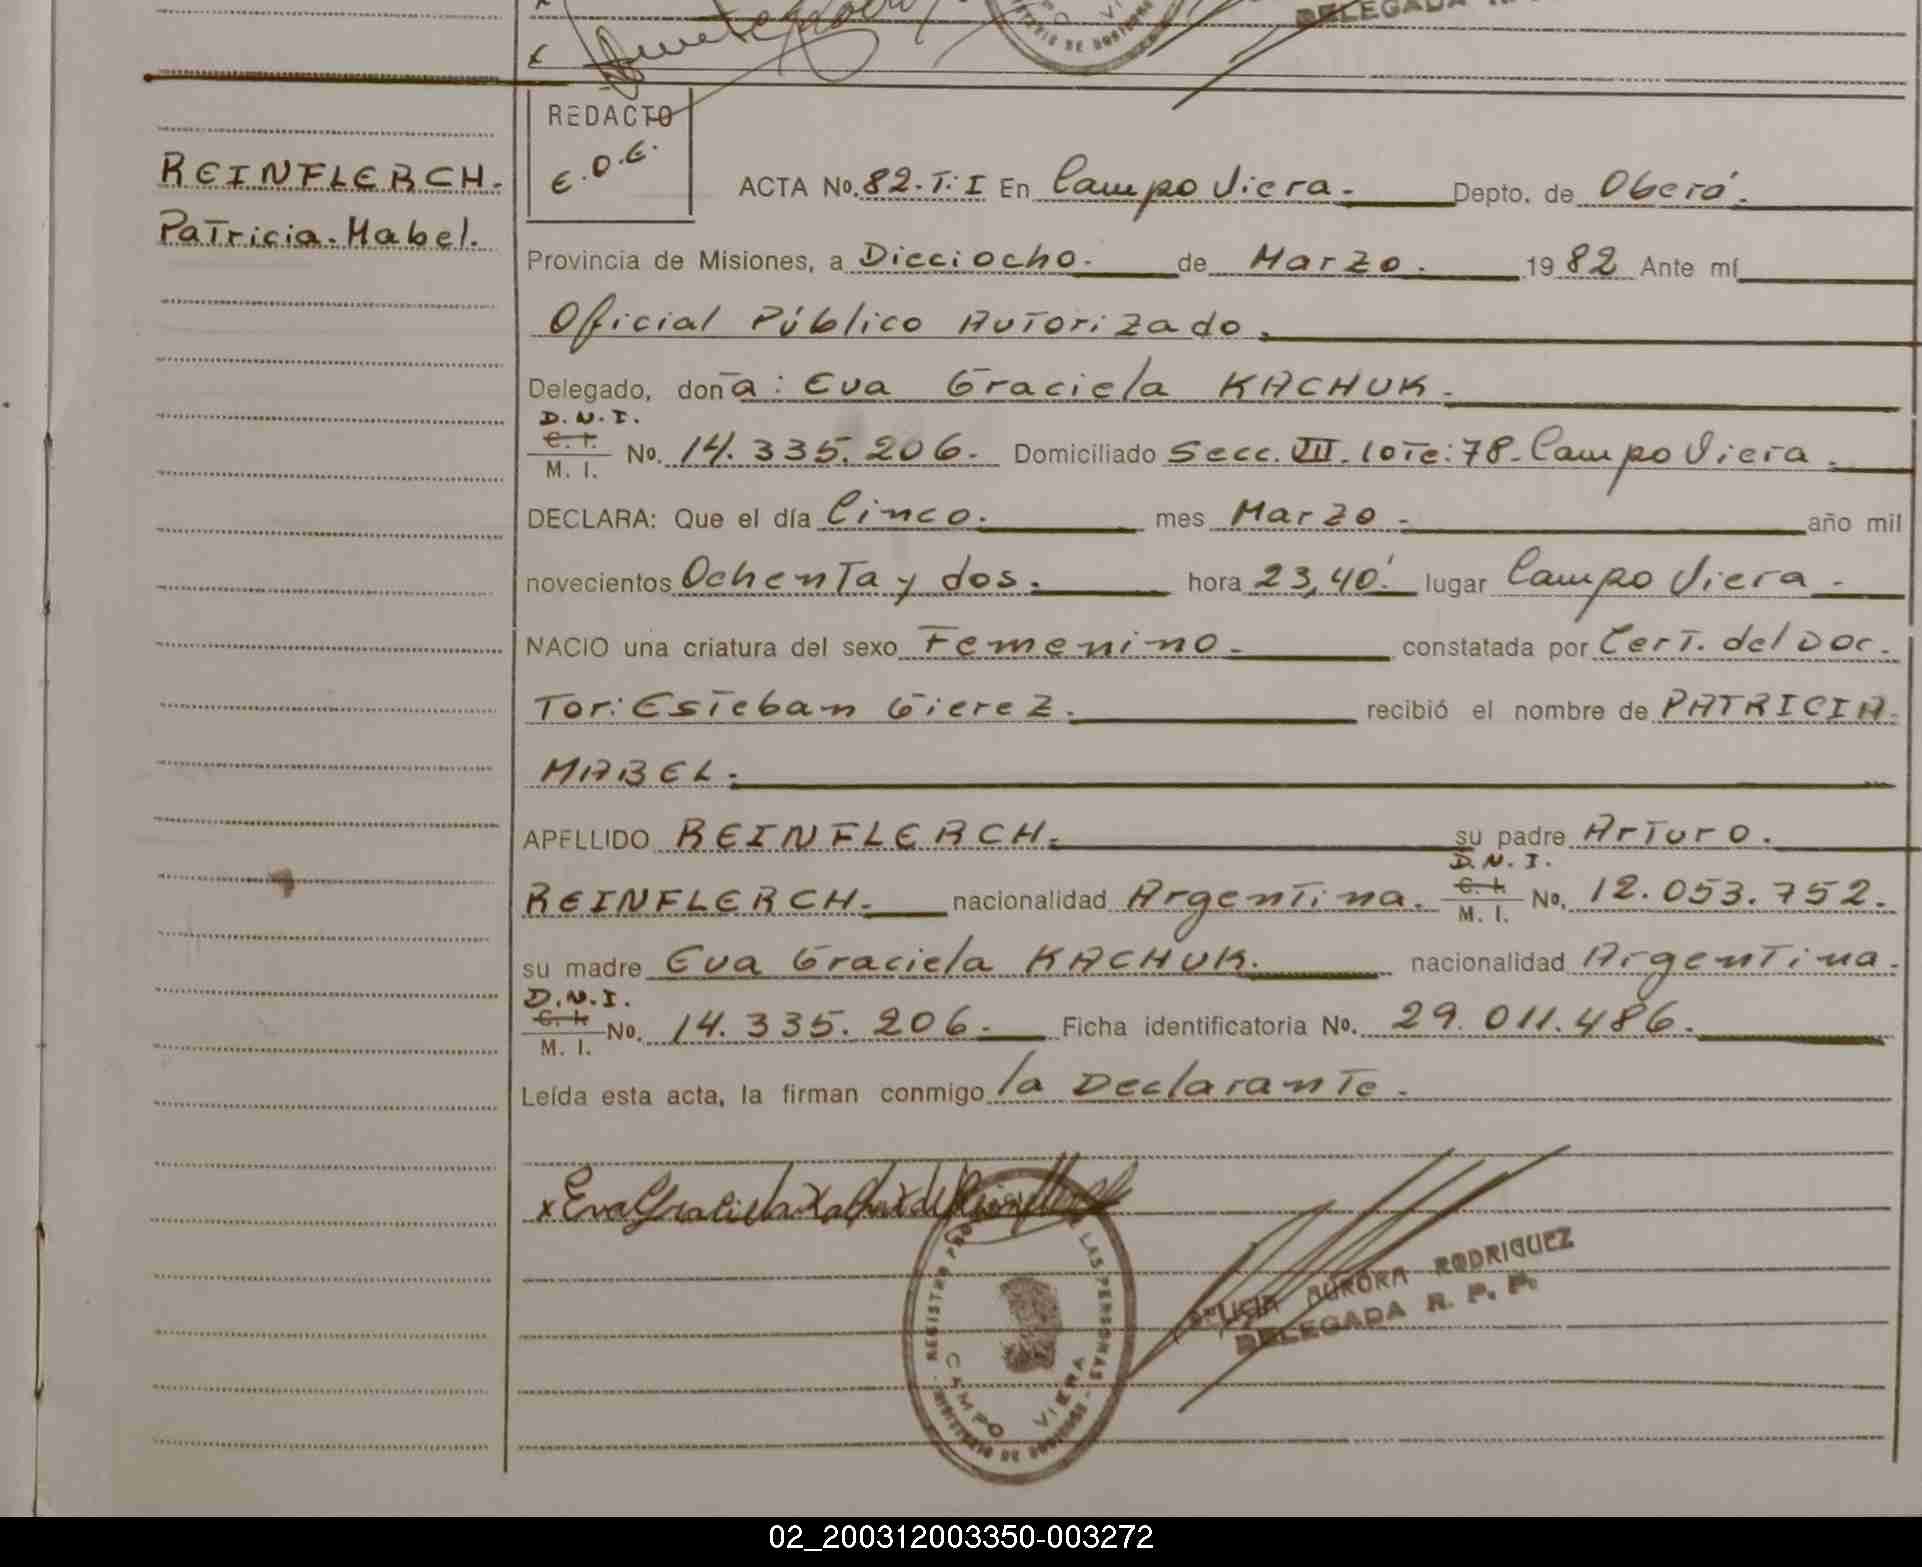 DELEGADA
REDACTO
E.O.E.
REINFLERCH.
Patricia. Mabel.
ACTA No. 82. T: I En Campo Viera. Depto. de Oberá.
Provincia de Misiones, a Dieciocho. de Marzo. 19 82 Ante mí
Oficial Público Autorizado.
Delegado, doña: Eva Graciela KACHUK.
D.N.I.
C. I.
M. I. No. 14.335.206. Domiciliado Secc. VII. lote: 78. Campo Viera.
DECLARA: Que el día Cinco. mes Marzo. año mil
novecientos Ochenta y dos. hora 23,40' lugar Campo Viera.
NACIO una criatura del sexo Femenino. constatada por Cert. del Doc.
Tor: Esteban Gierez. recibió el nombre de PATRICIA
MABEL.
APELLIDO REINFLERCH. su padre Arturo.
REINFLERCH. nacionalidad Argentina. D.N.I. C. I. M. I. No. 12.053.752.
su madre Eva Graciela KACHUK. nacionalidad Argentina.
D.N.I.
C. I.
M. I. No. 14.335.206. Ficha identificatoria No. 29.011.486.
Leída esta acta, la firman conmigo la Declarante.
x Eva Graciela Kachuk de
REGISTRO LAS PERSONAS
CAMPO VIERA
MINISTERIO DE GOBIERNO
AURORA RODRIGUEZ
DELEGADA R. P. P.
02_200312003350-003272